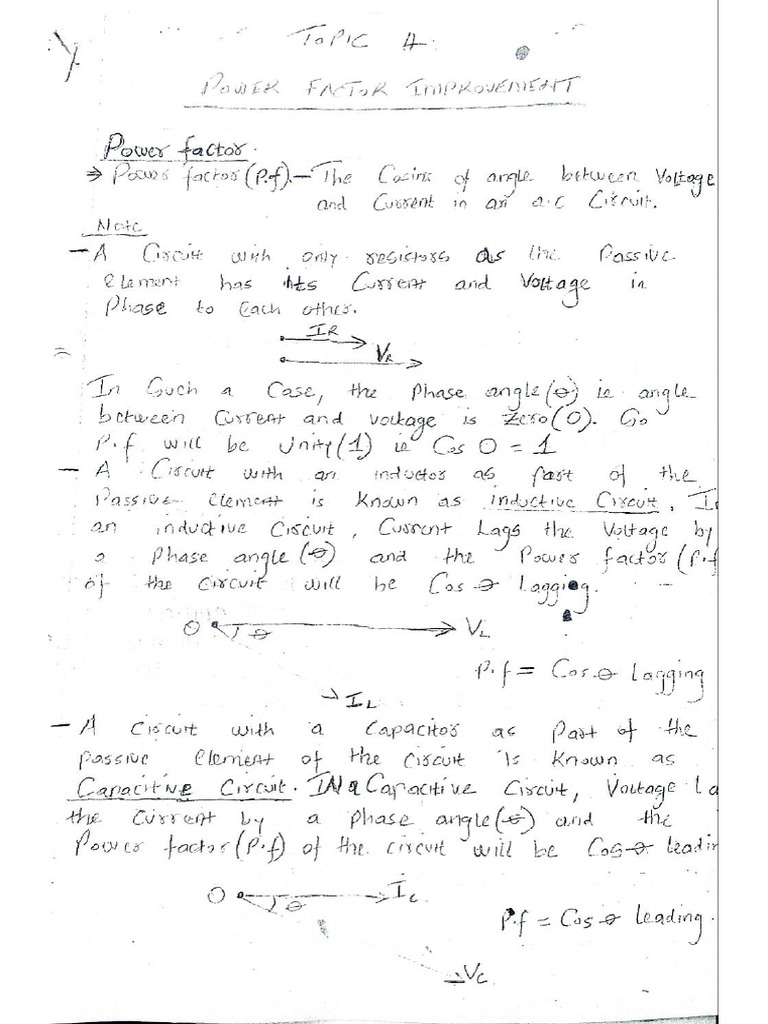 TOPIC 4
POWER FACTOR IMPROVEMENT
Power factor.
⇒ Power factor (P.f). – The Cosine of angle between Voltage
and Current in an a.c Circuit.
Note
– A Circuit with only resistors as the Passive
Element has its Current and Voltage in
Phase to Each other.
IR
VR
In Such a Case, the Phase angle (θ) ie angle
between Current and voltage is Zero (0). So
P.f will be Unity (1) ie Cos 0 = 1
– A Circuit with an inductor as part of the
Passive Element is Known as inductive Circuit. I
an inductive Circuit, Current Lags the Voltage by
a Phase angle (θ) and the Power factor (P.f
of the circuit will be Cos θ lagging.
O θ VL
P.f = Cos θ Lagging
IL
– A circuit with a Capacitor as Part of the
passive Element of the circuit is Known as
Capacitive Circuit. IN a Capacitive Circuit, Voltage La
the Current by a phase angle (θ) and the
Power factor (P.f) of the circuit will be Cos θ leadin
O θ IC
P.f = Cos θ leading.
VC